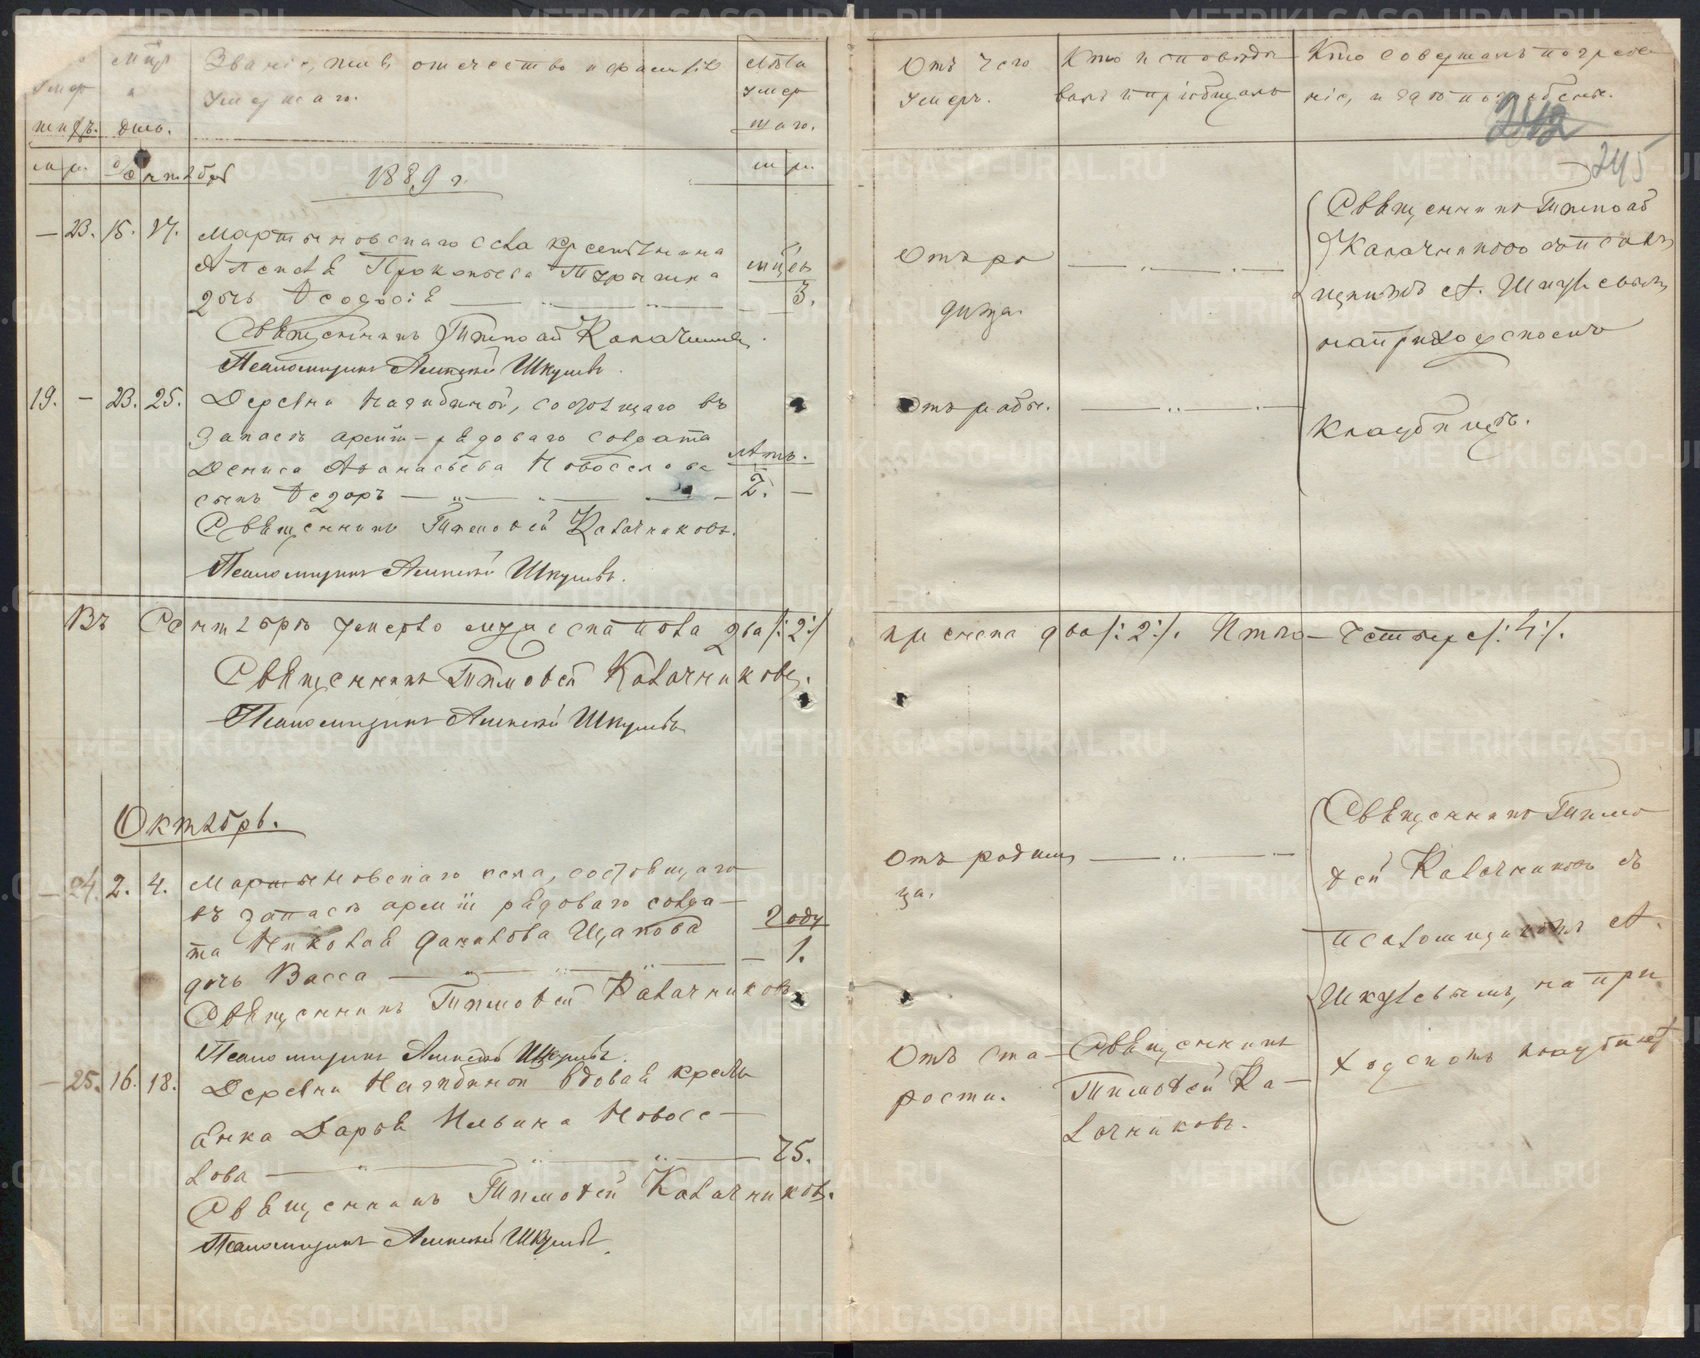 Мѣц. Званіе, имя, отчество и фамилія Лѣта
умер и умершаго. умер
шихъ. день. шаго.
м ж Сентябрь 1889 г. м ж
— 23. 15. 17. Мартыновскаго села крестьянина
Алексѣя Прокопьева мѣсяц
дочь Ѳеодосія — 3.
Священникъ Тимоѳей Калачниковъ.
Псаломщикъ Алексѣй Шкулевъ.
19. — 23. 25. Деревни состоящаго въ
запасѣ арміи рядоваго солдата
Дениса Аѳанасьева Новоселова лѣтъ.
сынъ Ѳедоръ — 2. —
Священникъ Тимоѳей Калачниковъ.
Псаломщикъ Алексѣй Шкулевъ.
Въ Сентябрѣ умерло мужеска пола два /:2:/
Священникъ Тимоѳей Калачниковъ.
Псаломщикъ Алексѣй Шкулевъ
Октябрь.
— 24. 2. 4. Мартыновскаго села, состоящаго
въ запасѣ арміи рядоваго солда-
та Николая Данилова Щапова году
дочь Васса — 1.
Священникъ Тимоѳей Калачниковъ
Псаломщикъ Алексѣй Шкулевъ.
— 25. 16. 18. Деревни вдовая кресть
янка Дарья Ильина Новосе-
лова — 75.
Священникъ Тимоѳей Калачниковъ.
Псаломщикъ Алексѣй Шкулевъ.
Отъ чего Кто исповѣды Кто совершалъ погребе
умеръ. валъ и пріобщалъ ніе, и гдѣ погребены.
242
245
Отъ ро
димца.
Священникъ Тимоѳей
Калачниковъ съ псалом
щикомъ А. Шкулевымъ
на приходскомъ
кладбищѣ.
женска два /:2:/. Итого — Четыре /:4:/.
Отъ родим
ца.
Священникъ Тимо
ѳей Калачниковъ съ
псаломщикомъ А.
Шкулевымъ, на при
ходскомъ кладбищѣ
Отъ ста-
рости.
Священникъ
Тимоѳей Ка-
лачниковъ.
METRIKI.GASO-URAL.RU